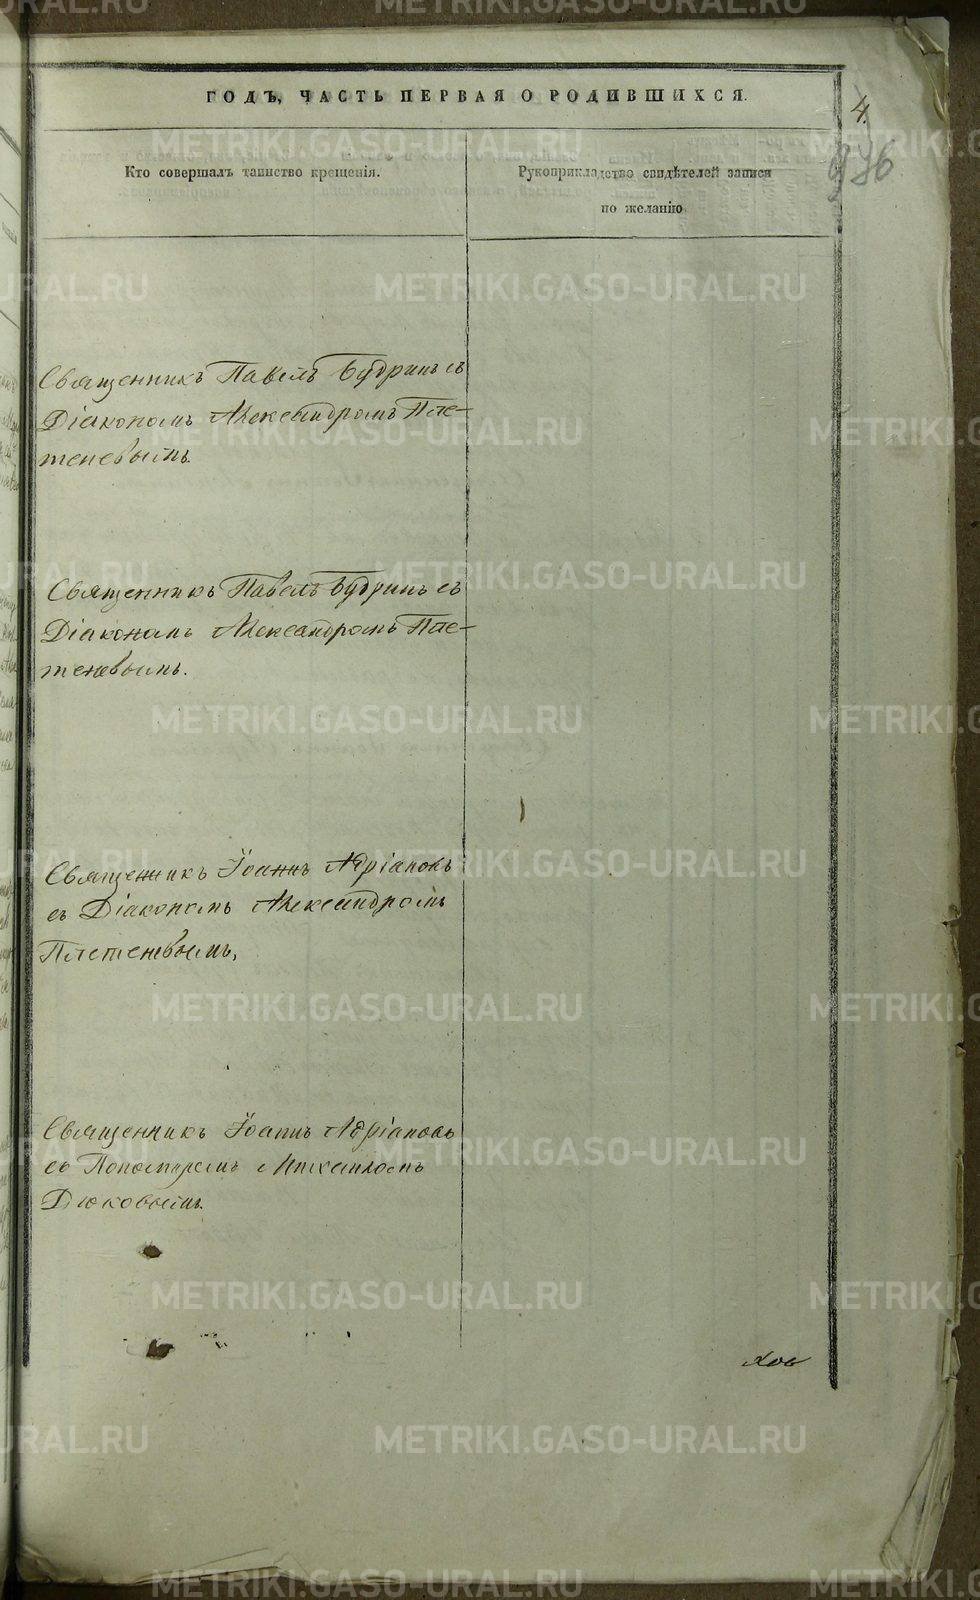 ГОДЪ, ЧАСТЬ ПЕРВАЯ О РОДИВШИХСЯ.
4.
936
Кто совершалъ таинство крещенія.
Рукоприкладство свидѣтелей записи
по желанію
Священникъ Павелъ Будринъ съ
Діакономъ Александромъ Пле-
теневымъ.
Священникъ Павелъ Будринъ съ
Діакономъ Александромъ Пле-
теневымъ.
Священникъ Іоаннъ Адріановъ
съ Діакономъ Александромъ
Плетеневымъ,
Священникъ Іоаннъ Адріановъ
съ Пономаремъ Михаиломъ
Дюковымъ.
METRIKI.GASO-URAL.RU